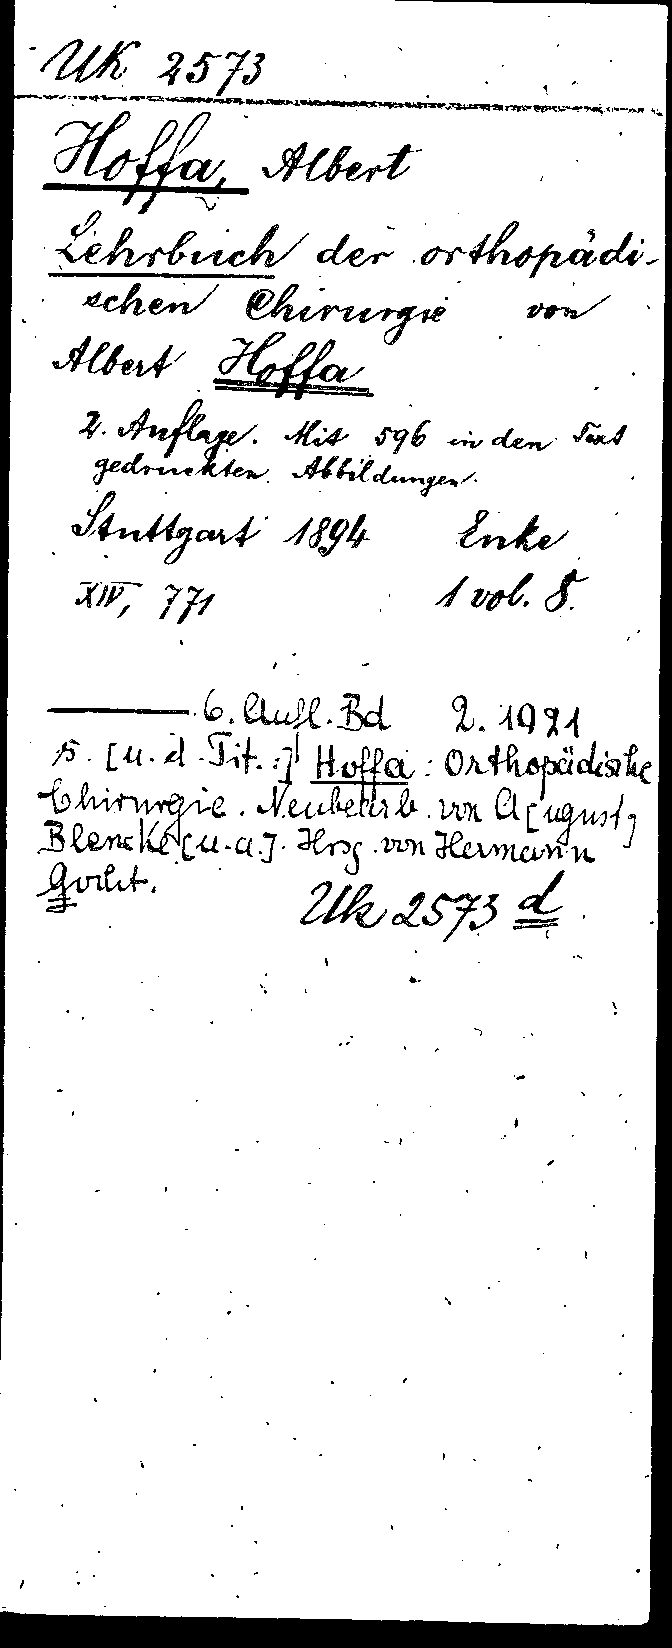 UK 2573
Hoffa, Albert
Lehrbuch der orthopädi-
schen Chirurgie von
Albert Hoffa
2. Auflage. Mit 596 in den Text
gedruckten Abbildungen.
Stuttgart 1894 Enke
XIV, 771 1 vol. 8.
——— 6. Aufl. Bd 2. 1921
8. [u. d. Tit.:] Hoffa: Orthopädische
Chirurgie. Neubearb. von A[ugust]
Blencke [u. a.]. Hrsg. von Hermann
Gocht.
Uk 2573 d